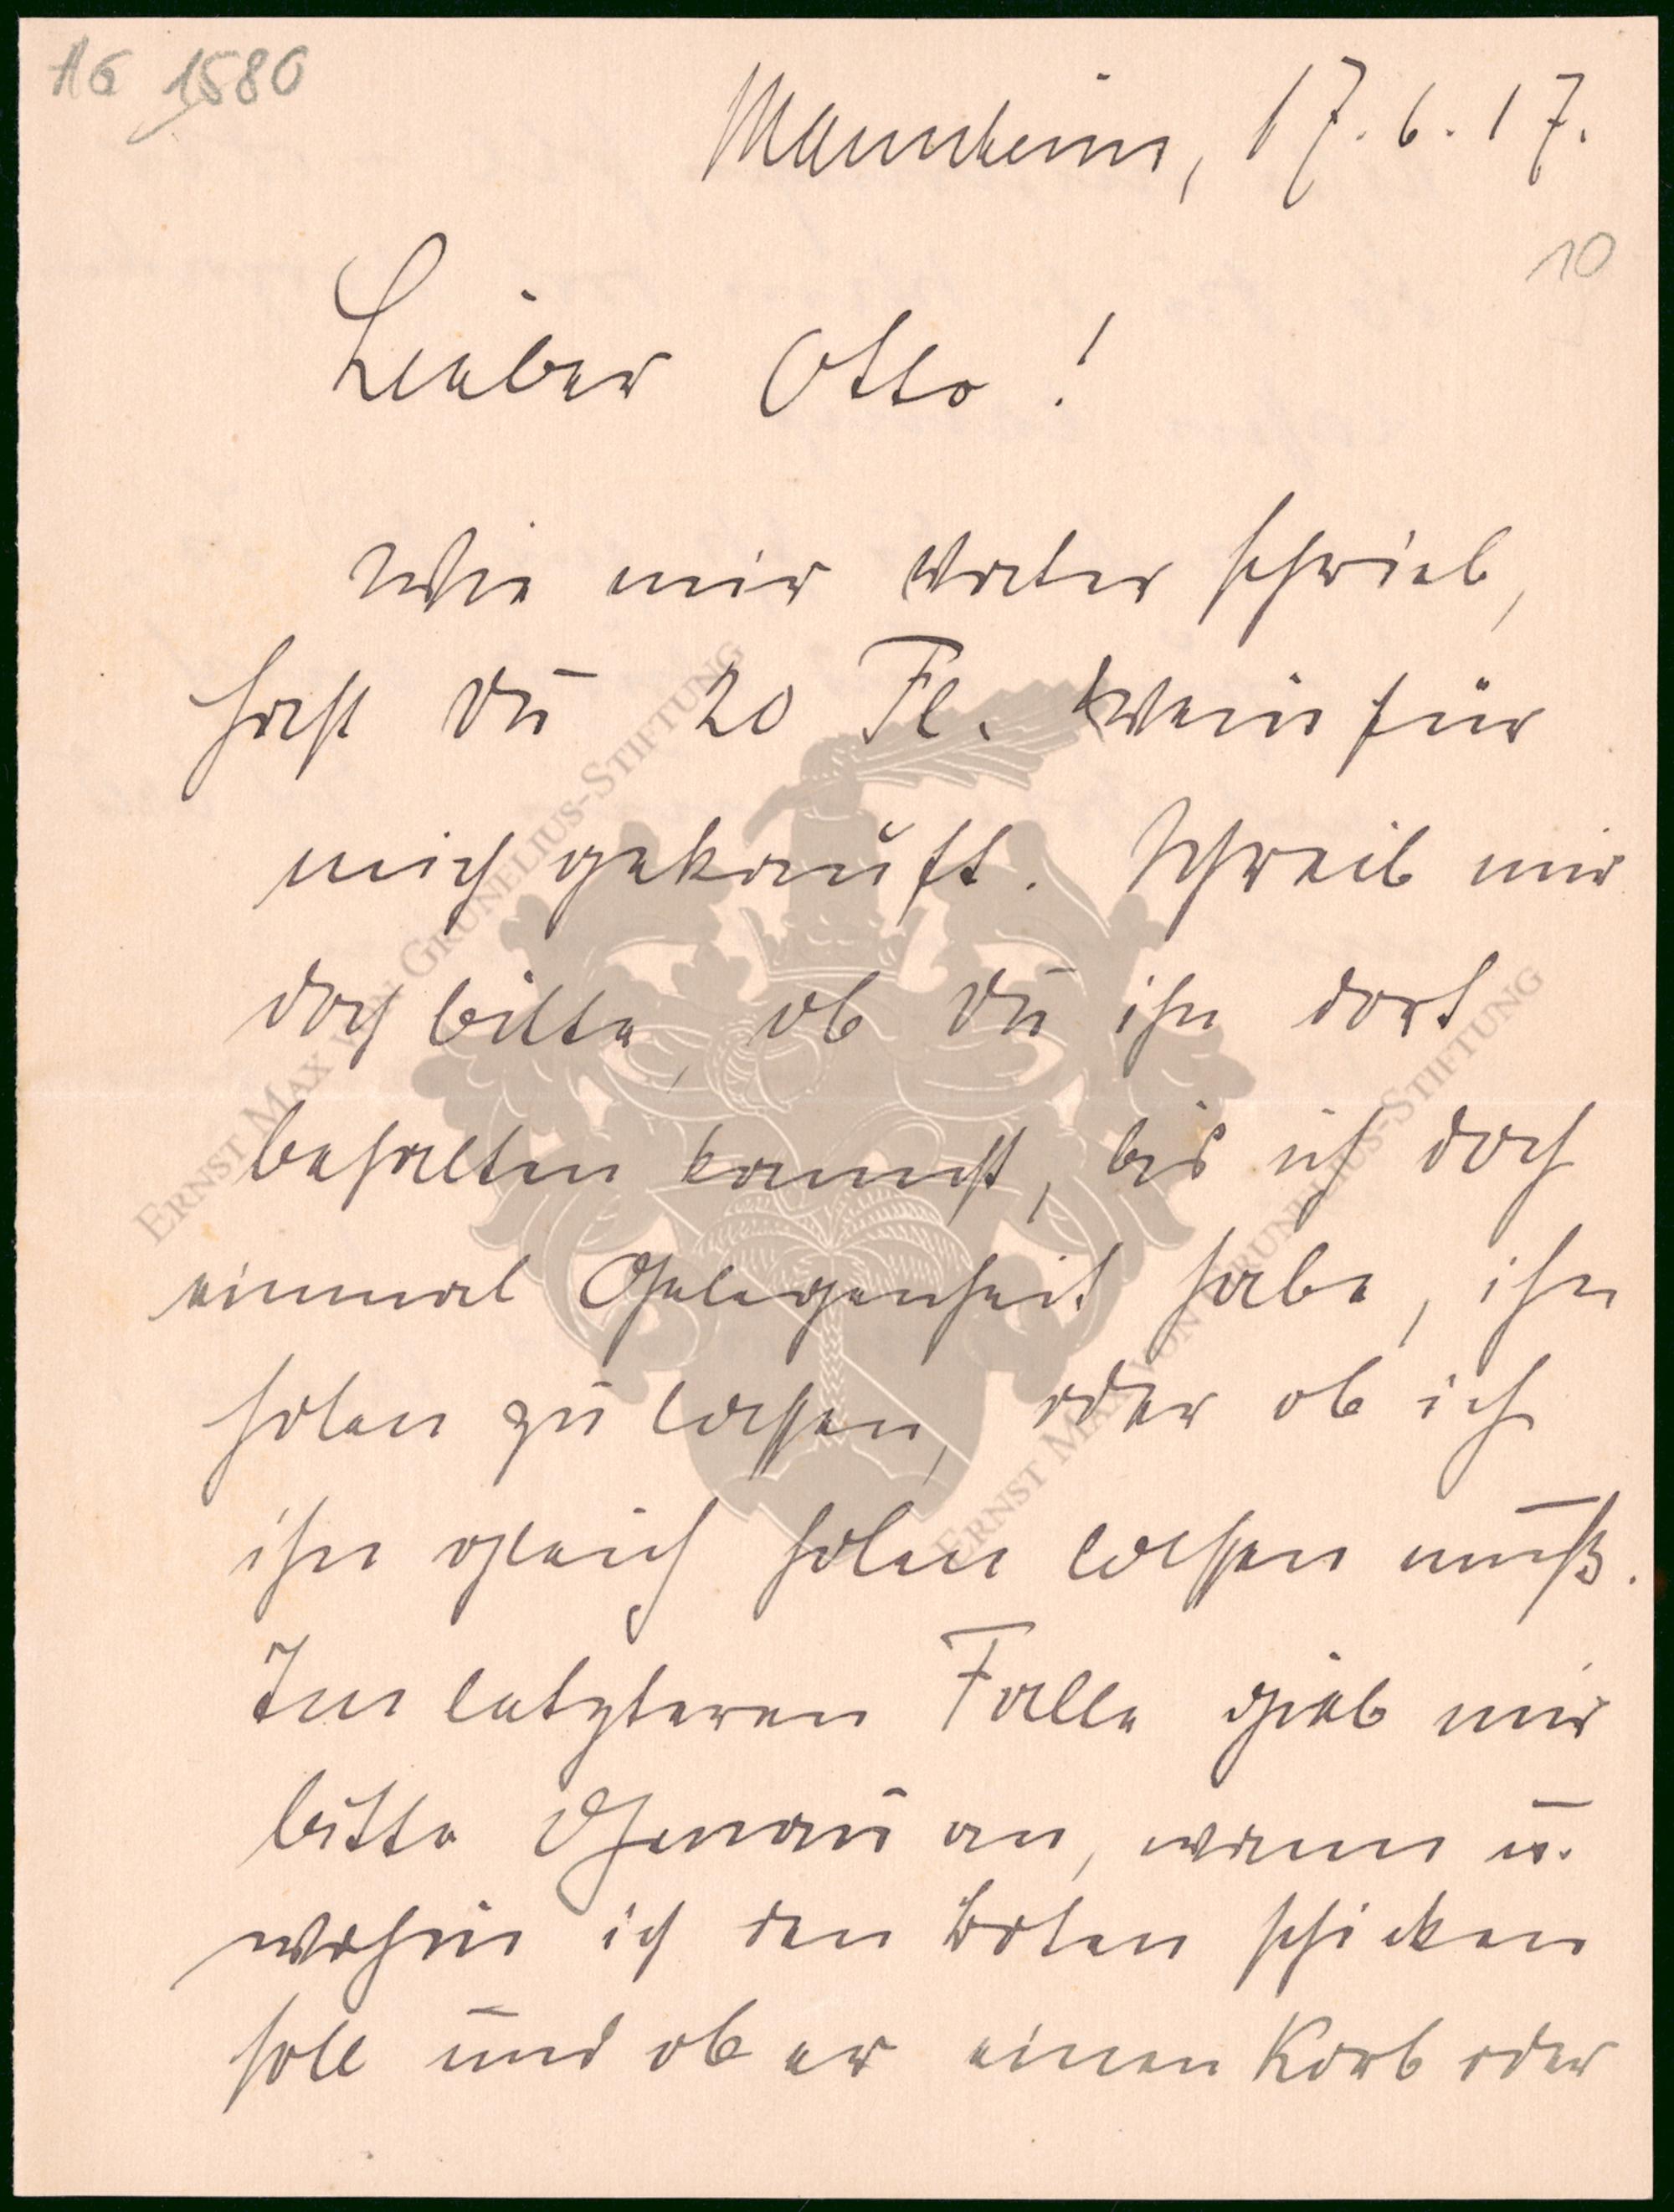 AG 1580
Mannheim, 17.6.17.
10
Lieber Otto!
Wie mir Vater schrieb,
hast Du 20 Fl. Wein für
mich gekauft. Schreib mir
doch bitte, ob Du ihn dort
behalten kannst, bis ich doch
einmal Gelegenheit habe, ihn
holen zu lassen, oder ob ich
ihn gleich holen lassen muß.
Im letzteren Falle gieb mir
bitte Genau an, wann u.
wohin ich den Boten schicken
soll und ob er einen Korb oder
ERNST MAX VON GRUNELIUS-STIFTUNG
ERNST MAX VON GRUNELIUS-STIFTUNG